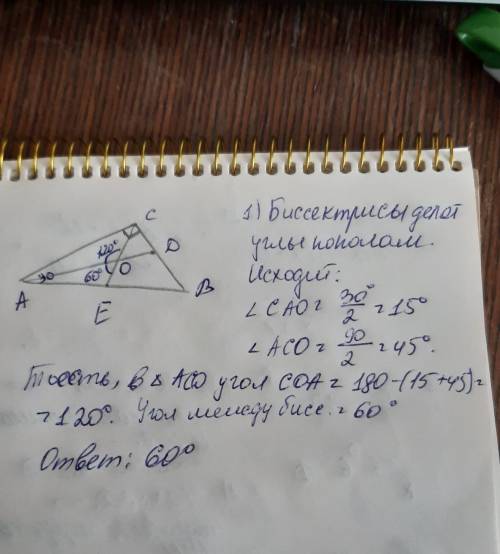 C
120°
D
30
60°
O
A
E
B
1) Биссектрисы делят
углы пополам.
Исходит:
∠CAO = 30°/2 = 15°
∠ACO = 90/2 = 45°.
Тоесть, в △ ACO угол COA = 180-(15+45)=
=120°. Угол между бисс. = 60°
Ответ: 60°